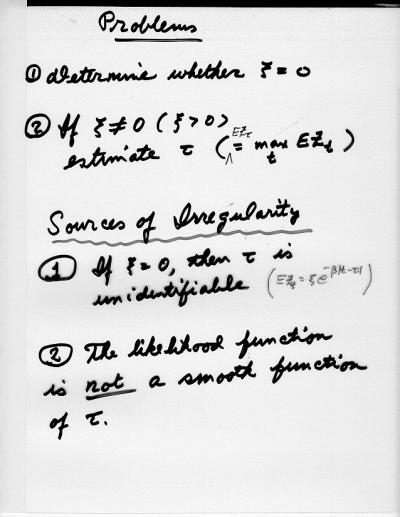 Problems
① determine whether ξ = 0
② If ξ ≠ 0 (ξ > 0)
estimate τ (EZτ = max_t EZ_t)
Sources of Irregularity
① If ξ = 0, then τ is
unidentifiable (EZ_t = ξe^{-β|t-τ|})
② The likelihood function
is not a smooth function
of τ.